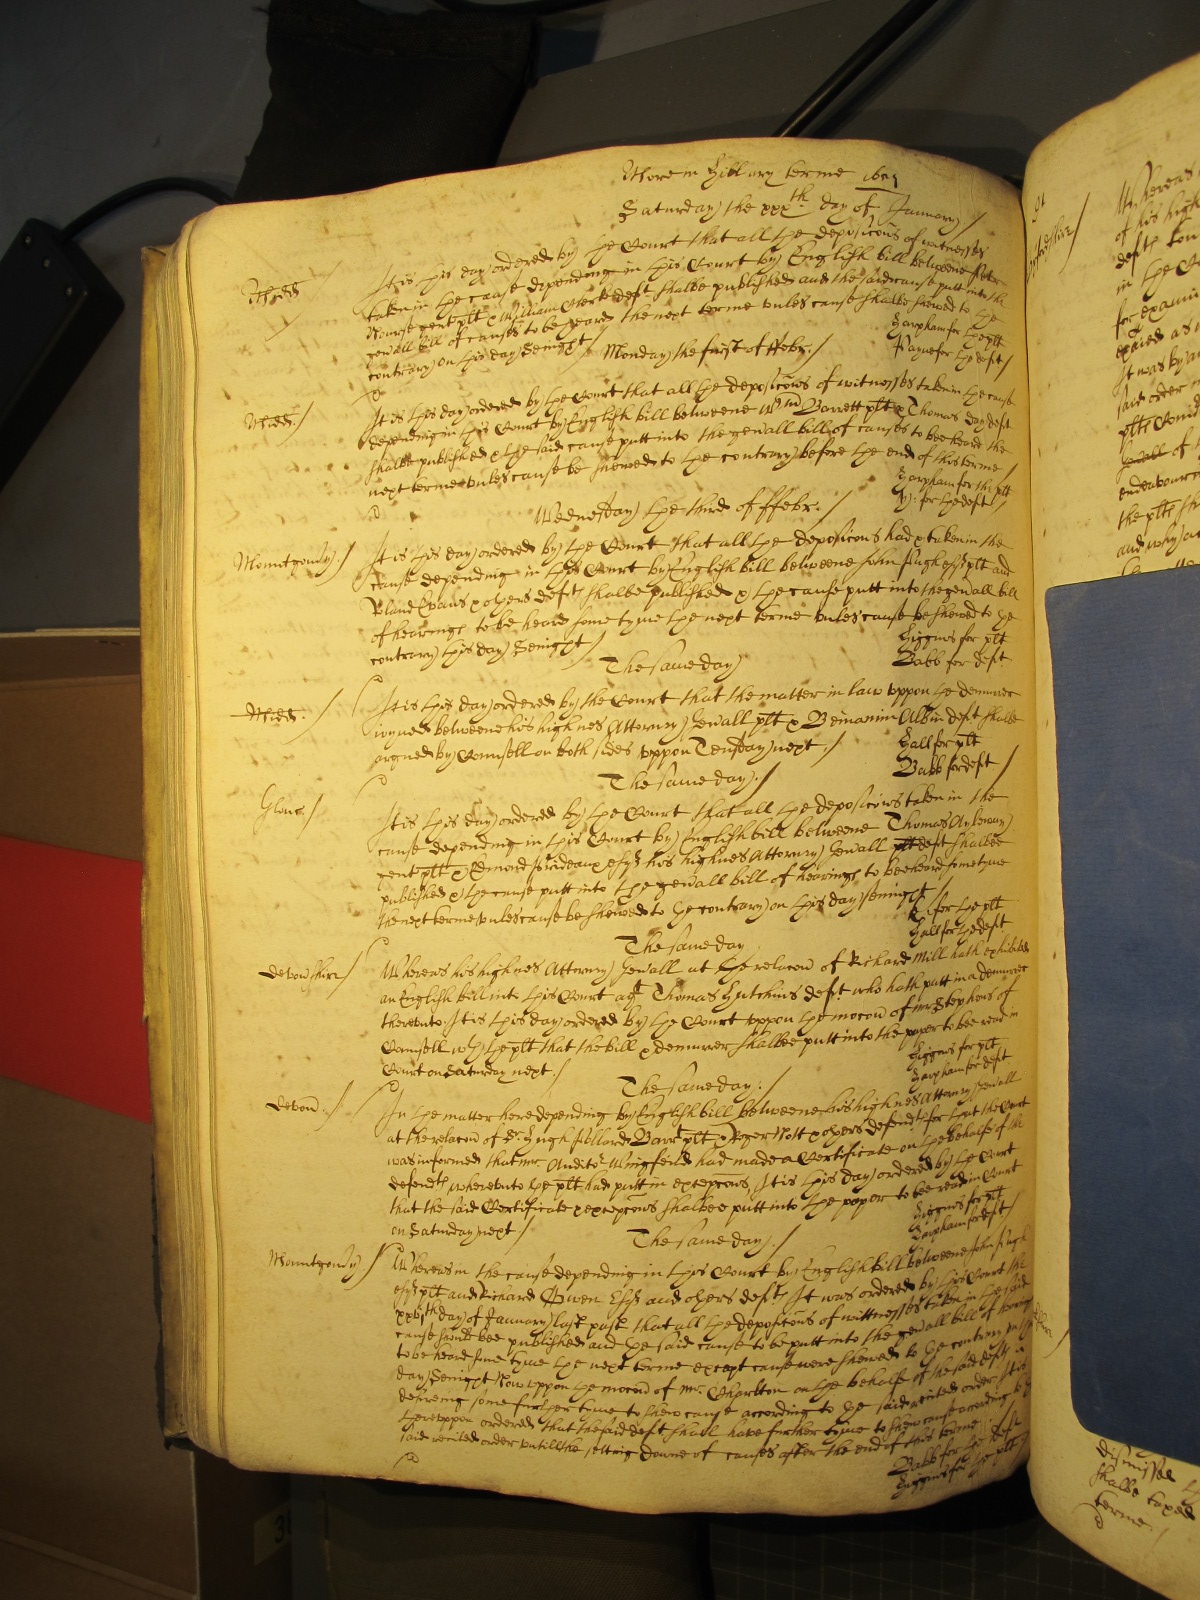 More in Hillary terme 1657
Saturday the xxxth day of January /
Midd
It is this day ordered by the Court that all the deposicons of witnesses
taken in the cause depending in this Court by English bill betweene
Nourse gent plt & William Clerke deft shalbe published and the said cause putt into the
genall bill of causes to be heard the next terme unles cause shalbe shewed to the
contrary on this day Senight /
Harpham for the plt
Payne for the deft /
Monday the first of ffebr. /
Midd /
It is this day ordered by the Court that all the deposicons of witnesses taken in the cause
depending in this Court by English bill betweene Wm Barrett plt & Thomas Day deft
shalbe published & the said cause putt into the genall bill of causes to bee heard the
next terme unles cause be shewed to the contrary before the end of this terme
Harpham for the plt
for the deft /
Wednesday the third of ffebr. /
Mountgomy. /
It is this day ordered by the Court that all the deposicons had & taken in the
cause depending in this Court by English bill betweene John Pugh esqr plt and
Roland Evans & others defts shalbe published & the cause putt into the genall bill
of hearings to be heard some tyme the next terme unles cause be shewed to the
contrary this day Senight /
Higgins for plt
Babb for deft
The same day
Midd. /
It is this day ordered by the Court that the matter in law uppon the demurrer
ioyned betweene his highnes Attorney Genall plt & Beniamin Albin deft shalbe
argued by Counsell on both sides uppon Tuesday next. /
Hall for plt
Babb for deft /
The same day. /
Glouc /
It is this day ordered by the Court that all the deposicons taken in the
cause depending in this Court by English bill betweene Thomas Ayleway
gent plt & Edmond Prideaux esqr his highnes Attorney Genall plt deft shalbee
published & the cause putt into the genall bill of hearings to bee heard some tyme
the next terme unles cause be shewed to the contrary on this day senight /
for the plt
Hall for the deft
The same day
devonshire /
Whereas his highnes Attorney Genall at the relacon of Richard Mill hath exhibited
an English bill into this Court agt Thomas Hutchins deft who hath putt in a demurrer
thereunto. It is this day ordered by the Court uppon the mocon of Mr Stephens of
Counsell wth the plt that the bill & demurrer shalbee putt into the paper to bee read in
Court on Saturday next. /
Higgins for plt
Harpham for deft.
The same day. /
devon. /
In the matter here depending by English bill betweene his highnes Attorney Genall
at the relacon of Sr Hugh Pollard Barrt plt & Roger Mott & others defendts for that the Court
was informed that Mr. Auditor Wingfeild had made a Certificate on the behalfe of the
defendts whereunto the plt had putt in excepcons, It is this day ordered by the Court
that the said Certificate & excepcons shalbee putt into the paper to bee read in Court
on Saturday next /
Higgins for plt
Harpham for deft /
The same day. /
Mountgomy /
Whereas in the cause depending in this Court by English bill betweene John Pugh
esqr plt and Richard Owen Esqr and others defts It was ordered by this Court the
xxvth day of January last past that all the deposicons of wittnesses taken in the said
cause should bee published and the said cause to be putt into the genall bill of hearings
to be heard some tyme the next terme except cause were shewed to the contrary on
day Senight Now uppon the mocon of Mr. Charlton on the behalfe of the said defts
desireing some further time to shew cause according to the said recited order. It is
thereuppon ordered that the said deft shall have further tyme to shew cause according to the
said recited order untill the setting downe of causes after the end of this terme /
Babb for the deft
Higgins for the plt